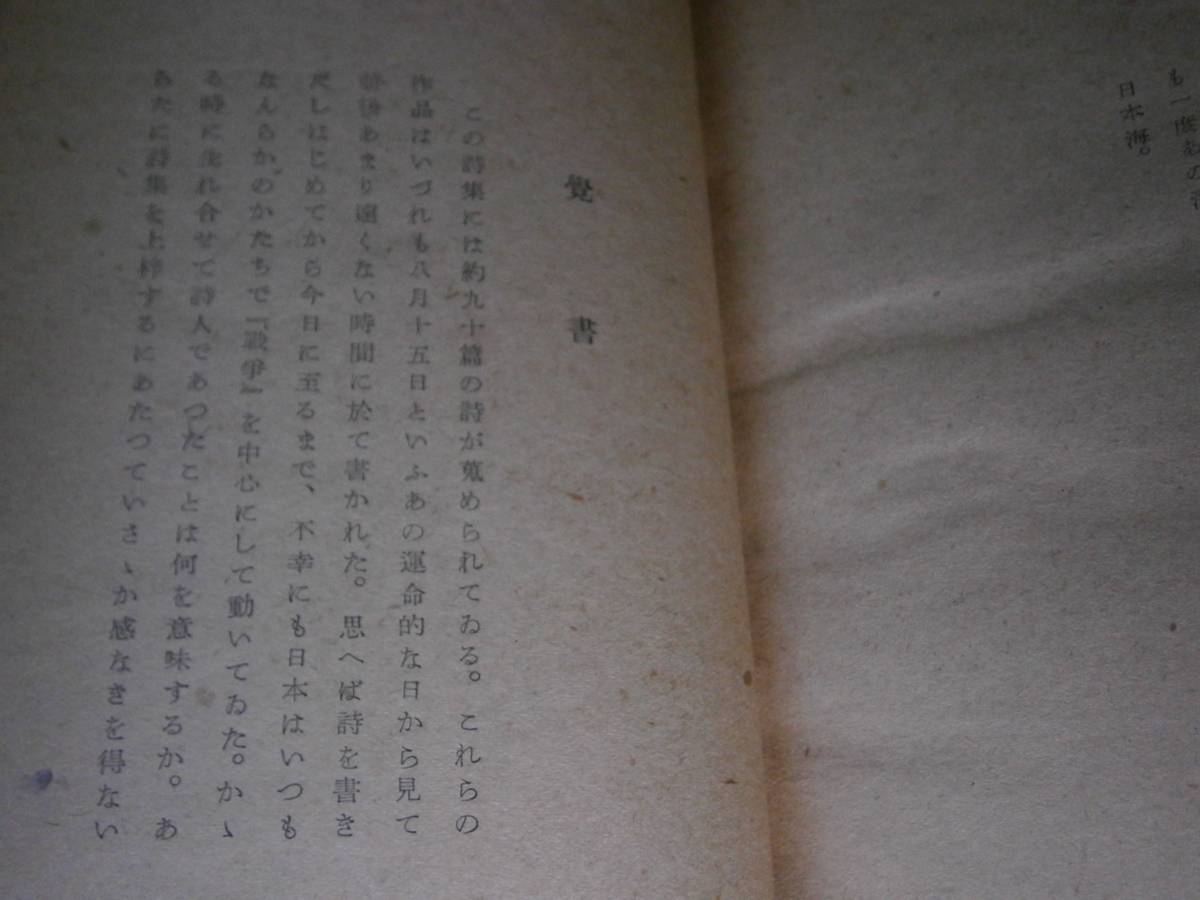 も一度
日本海。
覺書
この詩集には約九十篇の詩が蒐められてゐる。これらの
作品はいづれも八月十五日といふあの運命的な日から見て
前後あまり遠くない時間に於て書かれた。思へば詩を書き
だしはじめてから今日に至るまで、不幸にも日本はいつも
なんらかのかたちで『戰爭』を中心にして動いてゐた。かゝ
る時に生れ合せて詩人であつたことは何を意味するか。あ
らたに詩集を上梓するにあたつていさゝか感なきを得ない